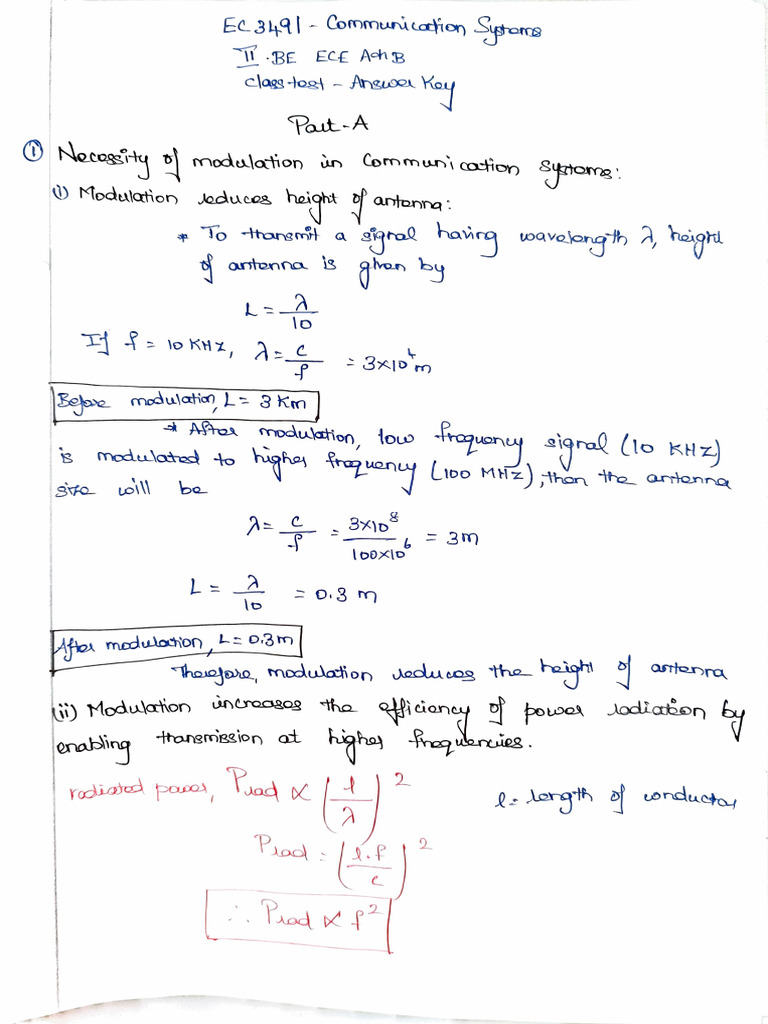 EC3491 - Communication Systems
II. BE ECE A & B
Class test - Answer Key
Part-A
① Necessity of modulation in Communication Systems:
(i) Modulation reduces height of antenna:
* To transmit a signal having wavelength λ, height
of antenna is given by
L = λ/10
If f = 10 KHZ, λ = c/f = 3×10⁴ m
Before modulation, L = 3 Km
* After modulation, low frequency signal (10 KHZ)
is modulated to higher frequency (100 MHZ), then the antenna
size will be
λ = c/f = 3×10⁸/100×10⁶ = 3m
L = λ/10 = 0.3 m
After modulation, L = 0.3m
Therefore, modulation reduces the height of antenna
(ii) Modulation increases the efficiency of power radiation by
enabling transmission at higher frequencies.
radiated power, Prad ∝ (l/λ)² l = length of conductor
Prad = (l.f/c)²
∴ Prad ∝ f²